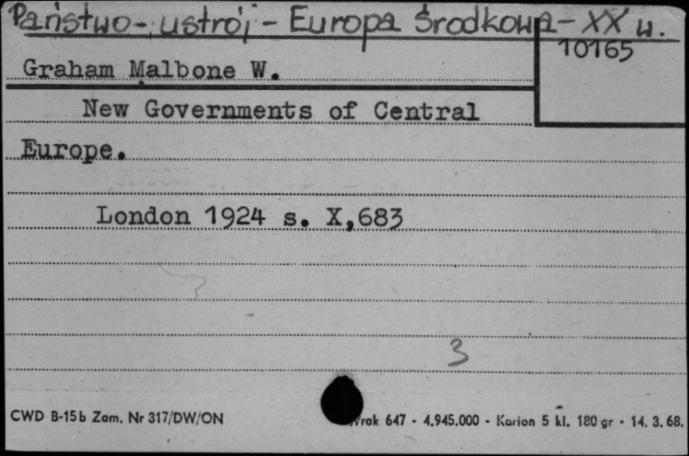 Państwo-, ustrój, - Europa Środkowa - XX w.
10165
Graham Malbone W.
New Governments of Central
Europe.
London 1924 s. X,683
3
CWD B-15b Zam. Nr 317/DW/ON
647 - 4.945.000 - Karton 5 kl. 180 gr - 14. 3. 68.